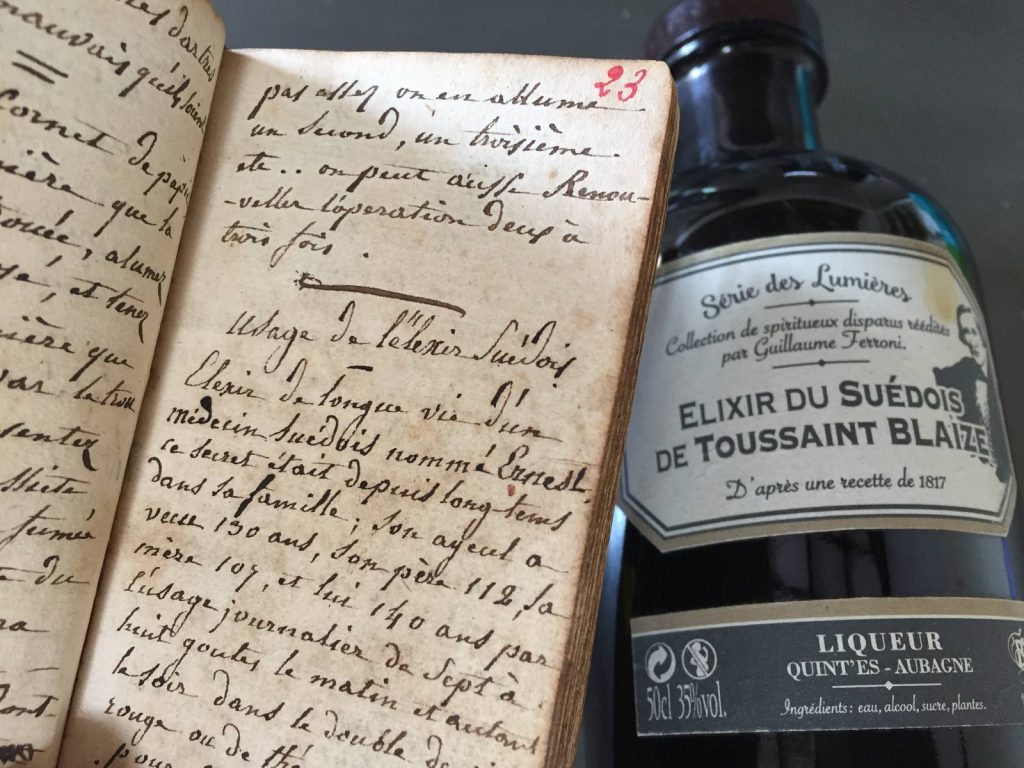 mauvais qu'ils soient
Cornet de
nière que la
trouée, alumez
et tenez
nière que
sentez
fumée
du
23
pas assez on en allume
un Second, un troisième.
etc.. on peut aussi Renou-
-veller l'operation deux à
trois fois.
usage de l'élexir Suédois
Elexir de longue vie d'un
médecin Suédois nommé Ernest.
ce secret était depuis long-tems
dans sa famille; son ayeul a
vecu 130 ans, son père 112, sa
mère 107, et lui 140 ans par
l'usage journalier de Sept à
huit goutes le matin et autant
le soir dans le double de
rouge ou de thé
pour
Série des Lumières
Collection de spiritueux disparus réédités
par Guillaume Ferroni.
ELIXIR DU SUÉDOIS
DE TOUSSAINT BLAIZE
D'après une recette de 1817
LIQUEUR
QUINT'ES - AUBAGNE
50cl 35%vol.
Ingrédients: eau, alcool, sucre, plantes.